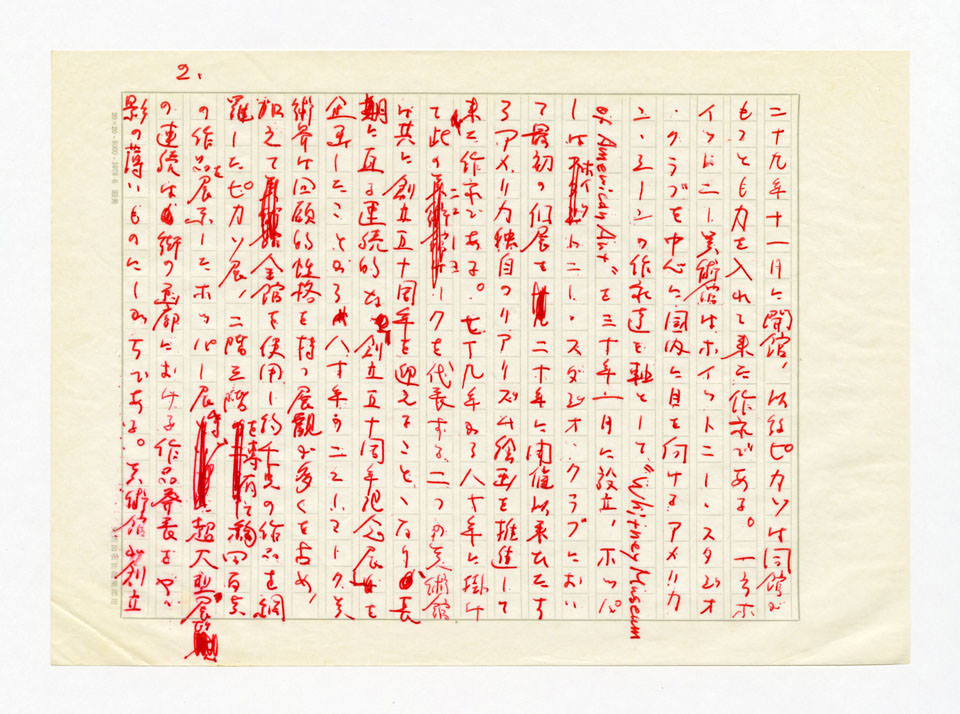 2.
二十九年十一月に開館、以後ピカソは同館が
もっとも力を入れて来た作家である。一方ホ
イットニー美術館はホイットニー・スタジオ
・クラブを中心に国内に目を向けるアメリカ
ン・シーンの作家達を軸として"Whitney Museum
of American Art"を三十年一月に設立、ホッパ
ーはホイットニー・スタジオ・クラブにおい
て最初の個展を二十年に開催以来ひたす
らアメリカ独自のリアリズム絵画を推進して
来た作家である。七十九年から八十年に掛け
て此のニューヨークを代表する二つの美術館
は共に創立五十周年を迎えることゝなり長
期に亙る連続的な創立五十周年記念展を
企画したことから八十年のニューヨーク美
術界は回顧的性格を持つ展観が多くを占め、
加えて全館を使用し約千点の作品を網
羅したピカソ展、二階三階を専有して約四百点
の作品を展示したホッパー展等超大型展
の連続は街の画廊における作品発表をやゝ
影の薄いものにしがちである。美術館が創立
20×20